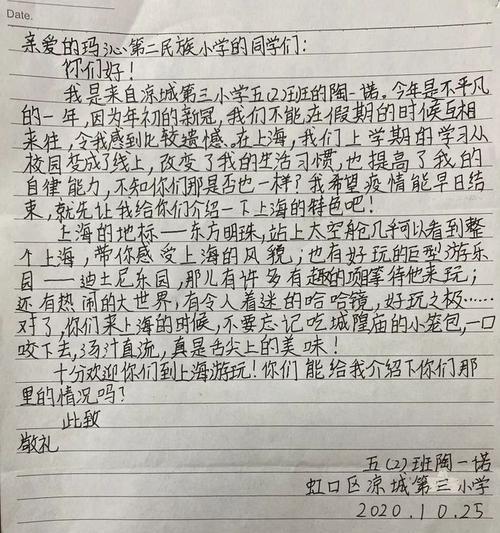 Date.
亲爱的玛沁第二民族小学的同学们:
你们好!
我是来自凉城第三小学五(2)班的陶一诺。今年是不平凡
的一年,因为年初的新冠,我们不能在假期的时候互相
来往,令我感到比较遗憾。在上海,我们上学期的学习从
校园变成了线上,改变了我的生活习惯,也提高了我的
自律能力,不知你们那是否也一样?我希望疫情能早日结
束,就先让我给你们介绍一下上海的特色吧!
上海的地标——东方明珠,站上太空舱几乎可以看到整
个上海,带你感受上海的风貌;也有好玩的巨型游乐
园——迪士尼乐园,那儿有许多有趣的项目等待他来玩;
还有热闹的大世界,有令人着迷的哈哈镜,好玩之极……
对了,你们来上海的时候,不要忘记吃城隍庙的小笼包,一口
咬下去,汤汁直流,真是舌尖上的美味!
十分欢迎你们到上海游玩!你们能给我介绍下你们那
里的情况吗?
此致
敬礼
五(2)班陶一诺
虹口区凉城第三小学
2020.10.25